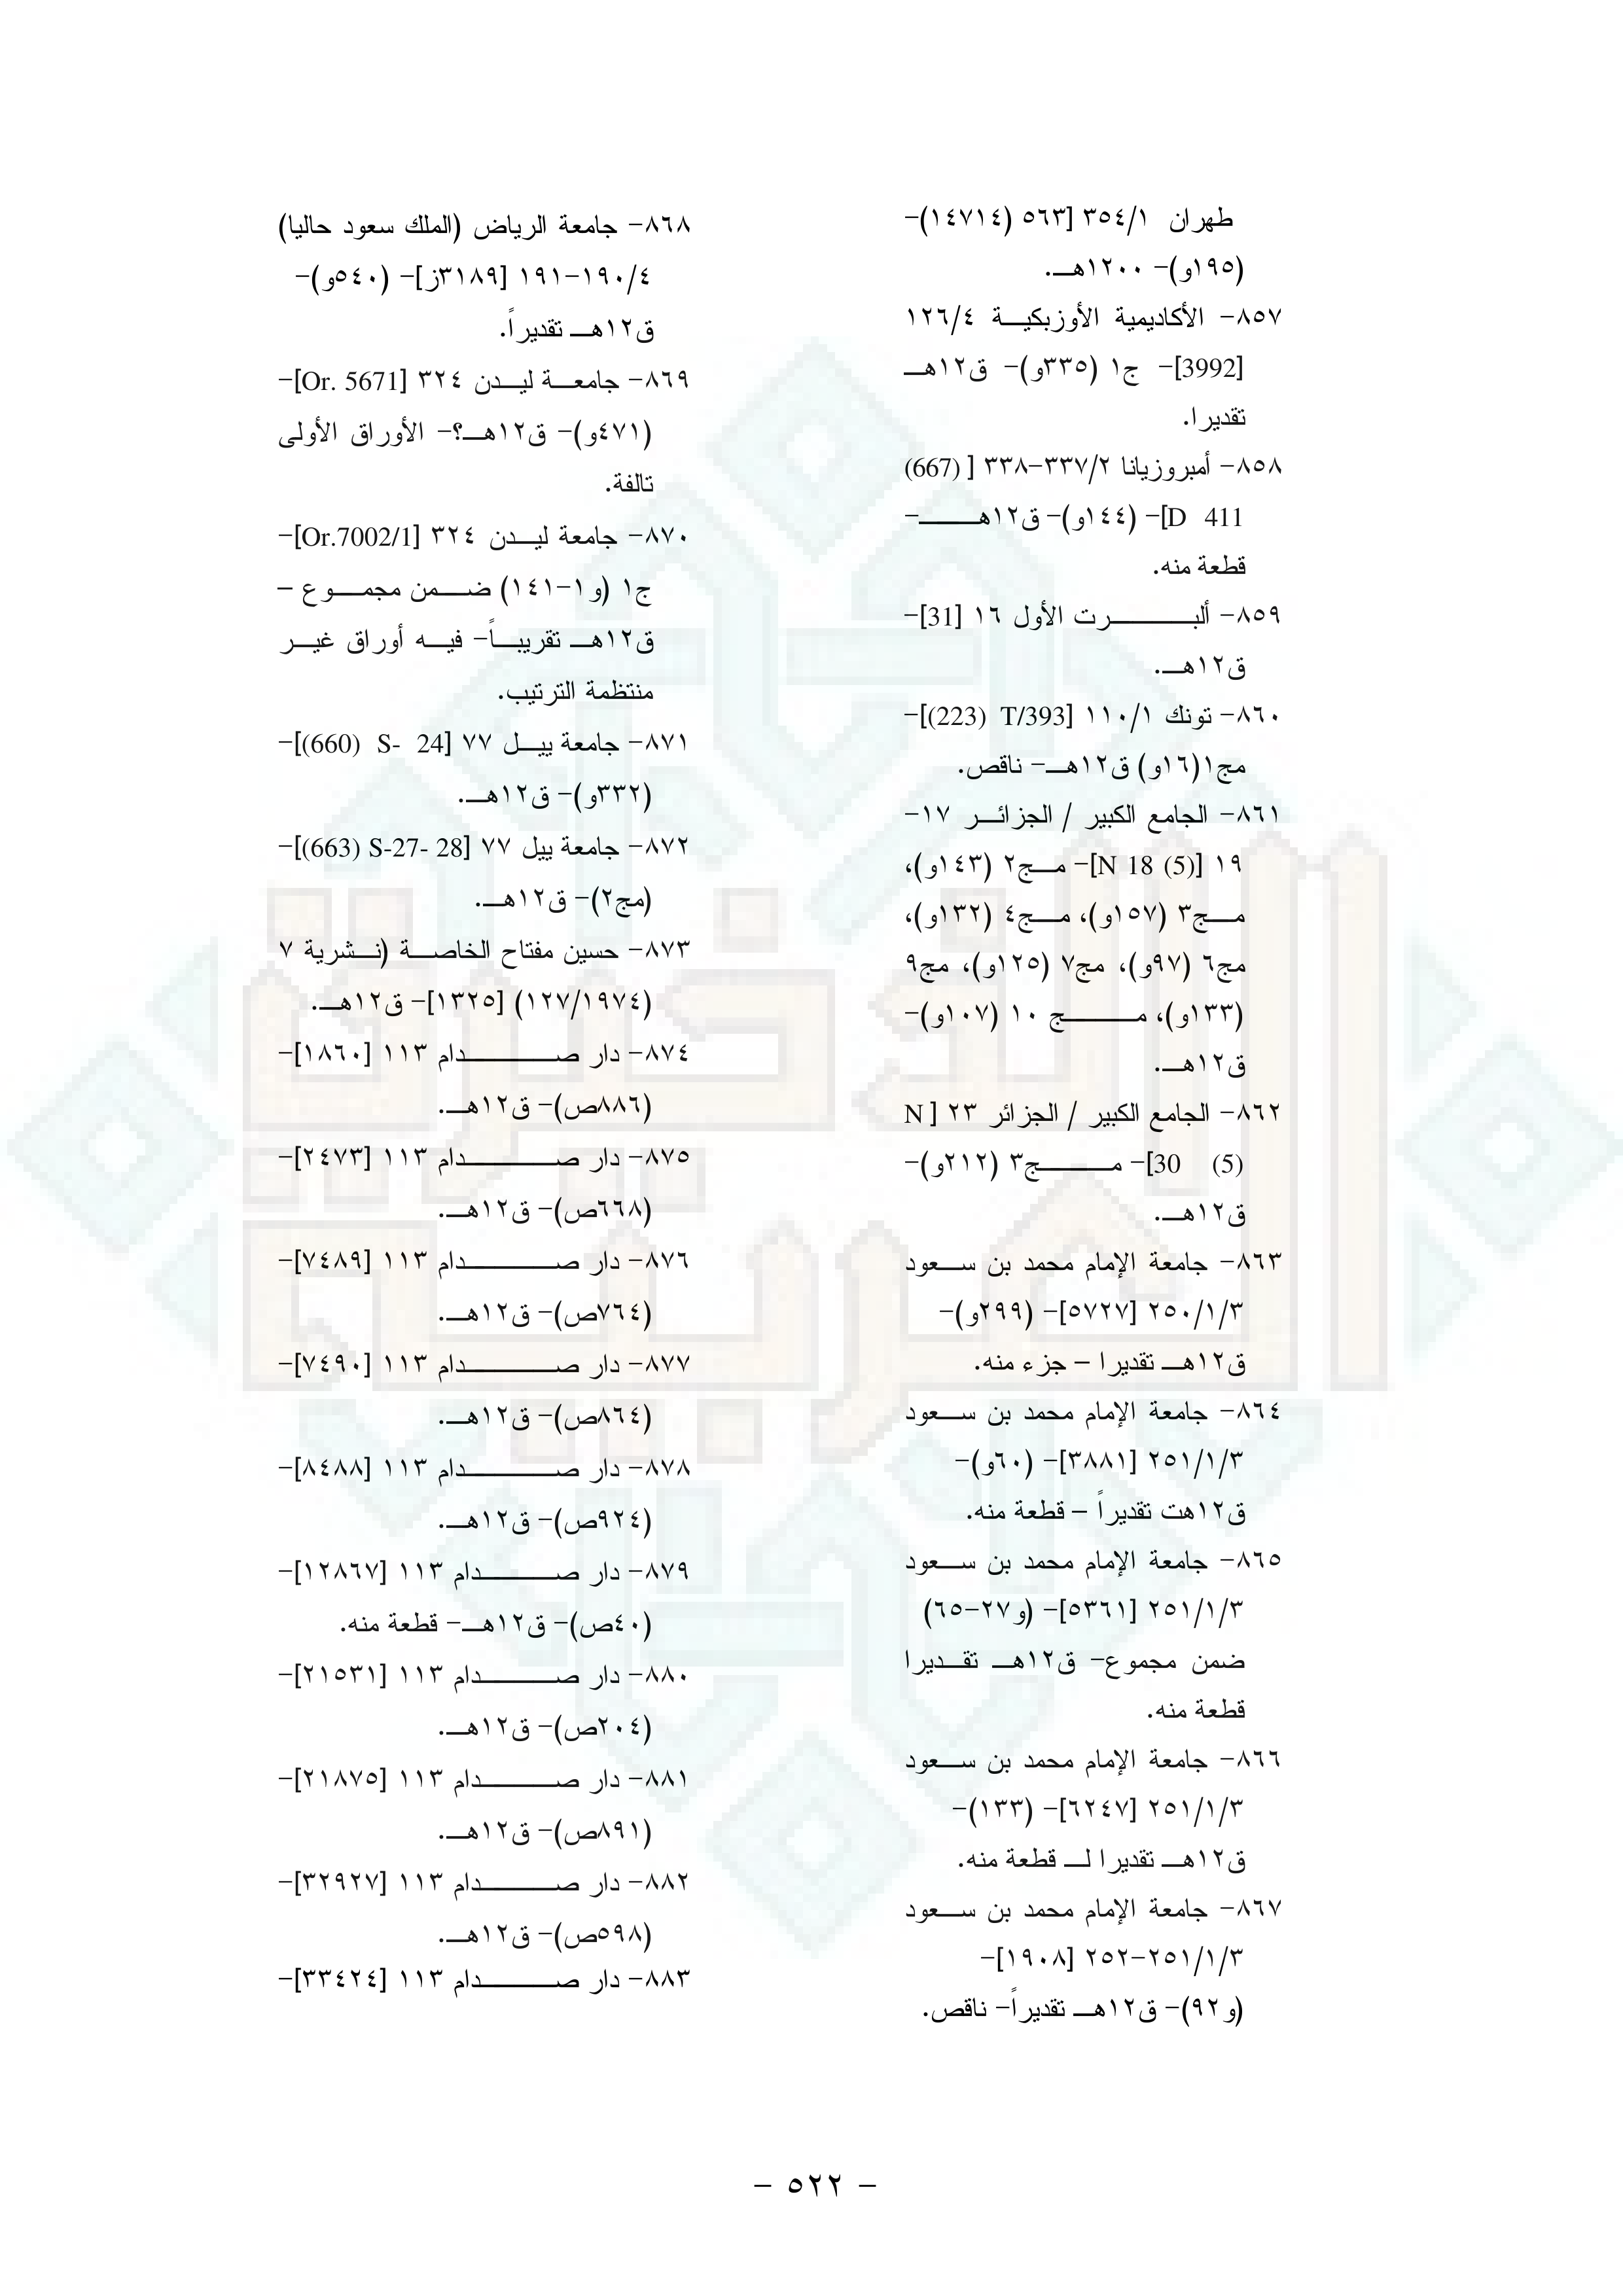 طهران ٣٥٤/١ [٥٦٣ (١٤٧١٤)-
(١٩٥و)- ١٢٠٠هـ.
٨٥٧- الأكاديمية الأوزبكية ١٢٦/٤
[3992]- ج١ (٣٣٥و)- ق١٢هـ
تقديرا.
٨٥٨- أمبروزيانا ٣٣٧/٢-٣٣٨ [ (667)
D 411]- (١٤٤و)- ق١٢هـ-
قطعة منه.
٨٥٩- ألبرت الأول ١٦ [31]-
ق١٢هـ.
٨٦٠- تونك ١١٠/١ [T/393 (223)]-
مج١(١٦و) ق١٢هـ- ناقص.
٨٦١- الجامع الكبير / الجزائر ١٧-
١٩ [N 18 (5)]- مج٢ (١٤٣و)،
مج٣ (١٥٧و)، مج٤ (١٣٢و)،
مج٦ (٩٧و)، مج٧ (١٢٥و)، مج٩
(١٣٣و)، مج ١٠ (١٠٧و)-
ق١٢هـ.
٨٦٢- الجامع الكبير / الجزائر ٢٣ [ N
30 (5)]- مج٣ (٢١٢و)-
ق١٢هـ.
٨٦٣- جامعة الإمام محمد بن سعود
٢٥٠/١/٣ [٥٧٢٧]- (٢٩٩و)-
ق١٢هـ تقديرا – جزء منه.
٨٦٤- جامعة الإمام محمد بن سعود
٢٥١/١/٣ [٣٨٨١]- (٦٠و)-
ق١٢هت تقديراً – قطعة منه.
٨٦٥- جامعة الإمام محمد بن سعود
٢٥١/١/٣ [٥٣٦١]- (و٢٧-٦٥)
ضمن مجموع- ق١٢هـ تقديرا
قطعة منه.
٨٦٦- جامعة الإمام محمد بن سعود
٢٥١/١/٣ [٦٢٤٧]- (١٣٣)-
ق١٢هـ تقديرا لـ قطعة منه.
٨٦٧- جامعة الإمام محمد بن سعود
٢٥١/١/٣-٢٥٢ [١٩٠٨]-
(و٩٢)- ق١٢هـ تقديراً- ناقص.
٨٦٨- جامعة الرياض (الملك سعود حاليا)
١٩٠/٤-١٩١ [٣١٨٩ز]- (٥٤٠و)-
ق١٢هـ تقديراً.
٨٦٩- جامعة ليدن ٣٢٤ [Or. 5671]-
(٤٧١و)- ق١٢هـ؟- الأوراق الأولى
تالفة.
٨٧٠- جامعة ليدن ٣٢٤ [Or.7002/1]-
ج١ (و١-١٤١) ضمن مجموع –
ق١٢هـ تقريباً- فيه أوراق غير
منتظمة الترتيب.
٨٧١- جامعة ييل ٧٧ [S- 24 (660)]-
(٣٣٢و)- ق١٢هـ.
٨٧٢- جامعة ييل ٧٧ [S-27- 28 (663)]-
(مج٢)- ق١٢هـ.
٨٧٣- حسين مفتاح الخاصة (نشرية ٧
(١٢٧/١٩٧٤) [١٣٢٥]- ق١٢هـ.
٨٧٤- دار صدام ١١٣ [١٨٦٠]-
(٨٨٦ص)- ق١٢هـ.
٨٧٥- دار صدام ١١٣ [٢٤٧٣]-
(٦٦٨ص)- ق١٢هـ.
٨٧٦- دار صدام ١١٣ [٧٤٨٩]-
(٧٦٤ص)- ق١٢هـ.
٨٧٧- دار صدام ١١٣ [٧٤٩٠]-
(٨٦٤ص)- ق١٢هـ.
٨٧٨- دار صدام ١١٣ [٨٤٨٨]-
(٩٢٤ص)- ق١٢هـ.
٨٧٩- دار صدام ١١٣ [١٢٨٦٧]-
(٤٠ص)- ق١٢هـ- قطعة منه.
٨٨٠- دار صدام ١١٣ [٢١٥٣١]-
(٢٠٤ص)- ق١٢هـ.
٨٨١- دار صدام ١١٣ [٢١٨٧٥]-
(٨٩١ص)- ق١٢هـ.
٨٨٢- دار صدام ١١٣ [٣٢٩٢٧]-
(٥٩٨ص)- ق١٢هـ.
٨٨٣- دار صدام ١١٣ [٣٣٤٢٤]-
- ٥٢٢ -